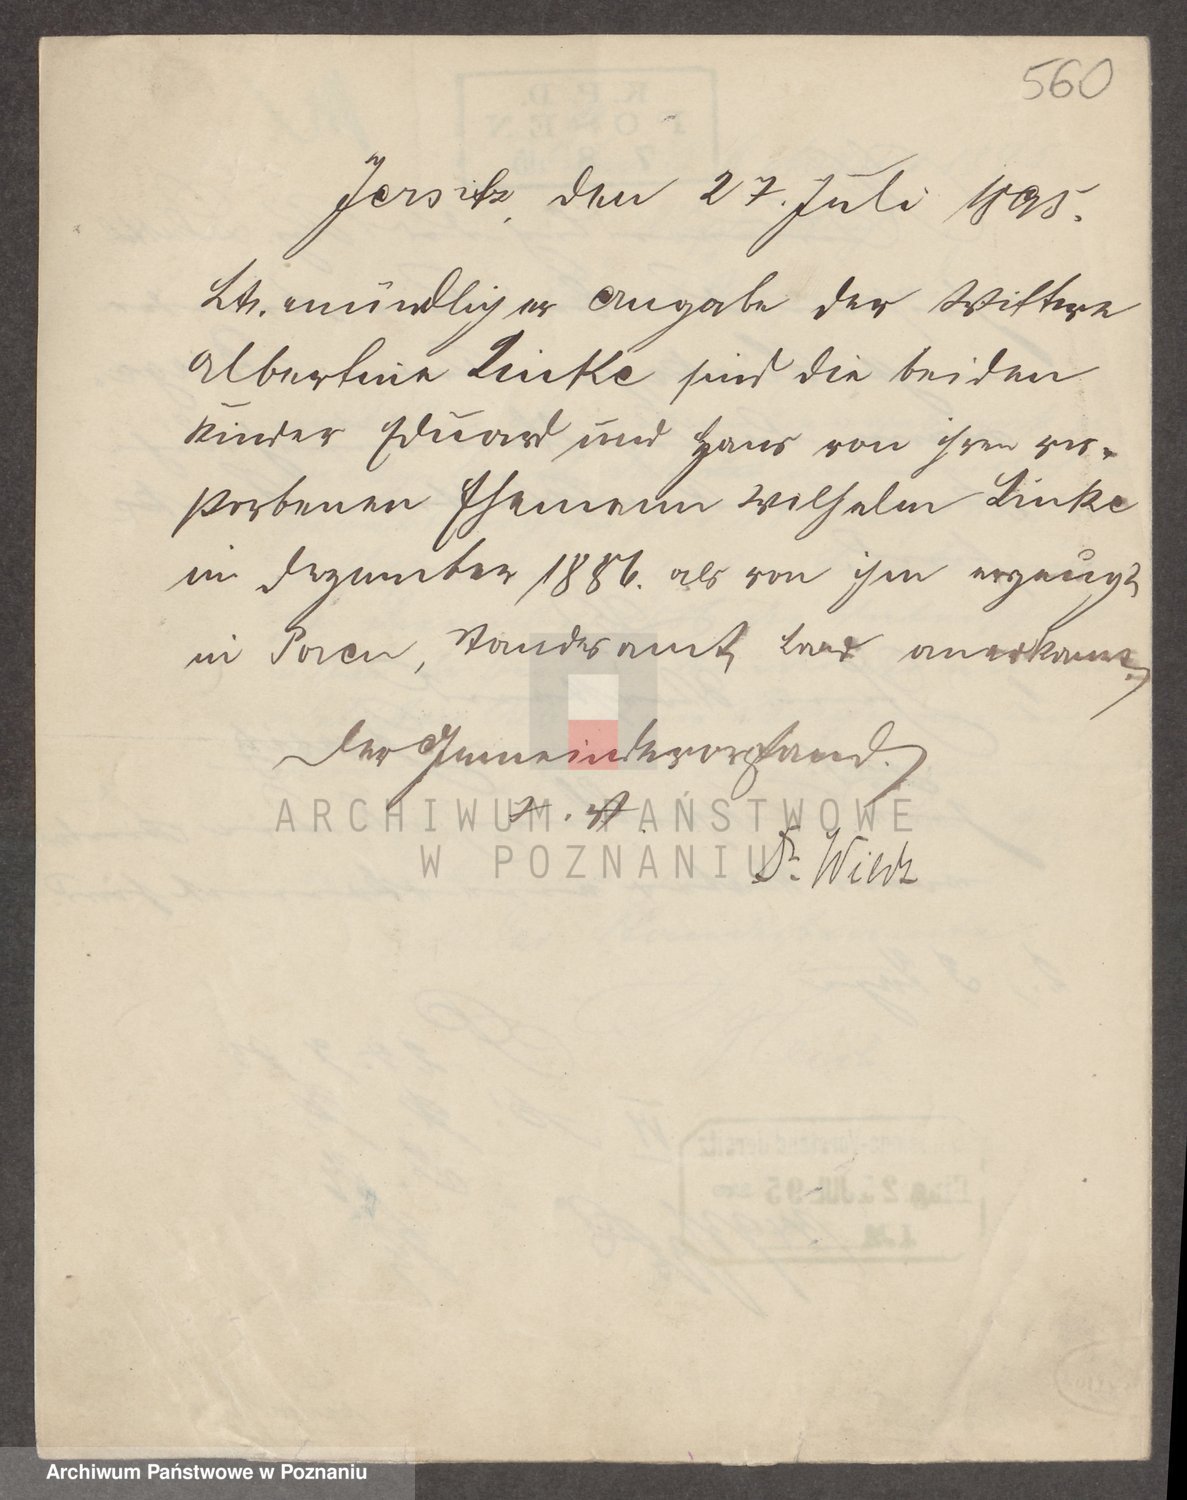 560
Jersitz, den 27. Juli 1895.
Lt. mündlicher Angabe der Wittwe
Albertine Linke sind die beiden
Kinder Eduard und Hans von ihren ver-
storbenen Ehemann Wilhelm Linke
in Dezember 1886. als von ihm erzeugt
in Posen, Standesamt, Land anerkannt.
Der Gemeindevorstand.
ARCHIWUM PAŃSTWOWE
W POZNANIU
Archiwum Państwowe w Poznaniu